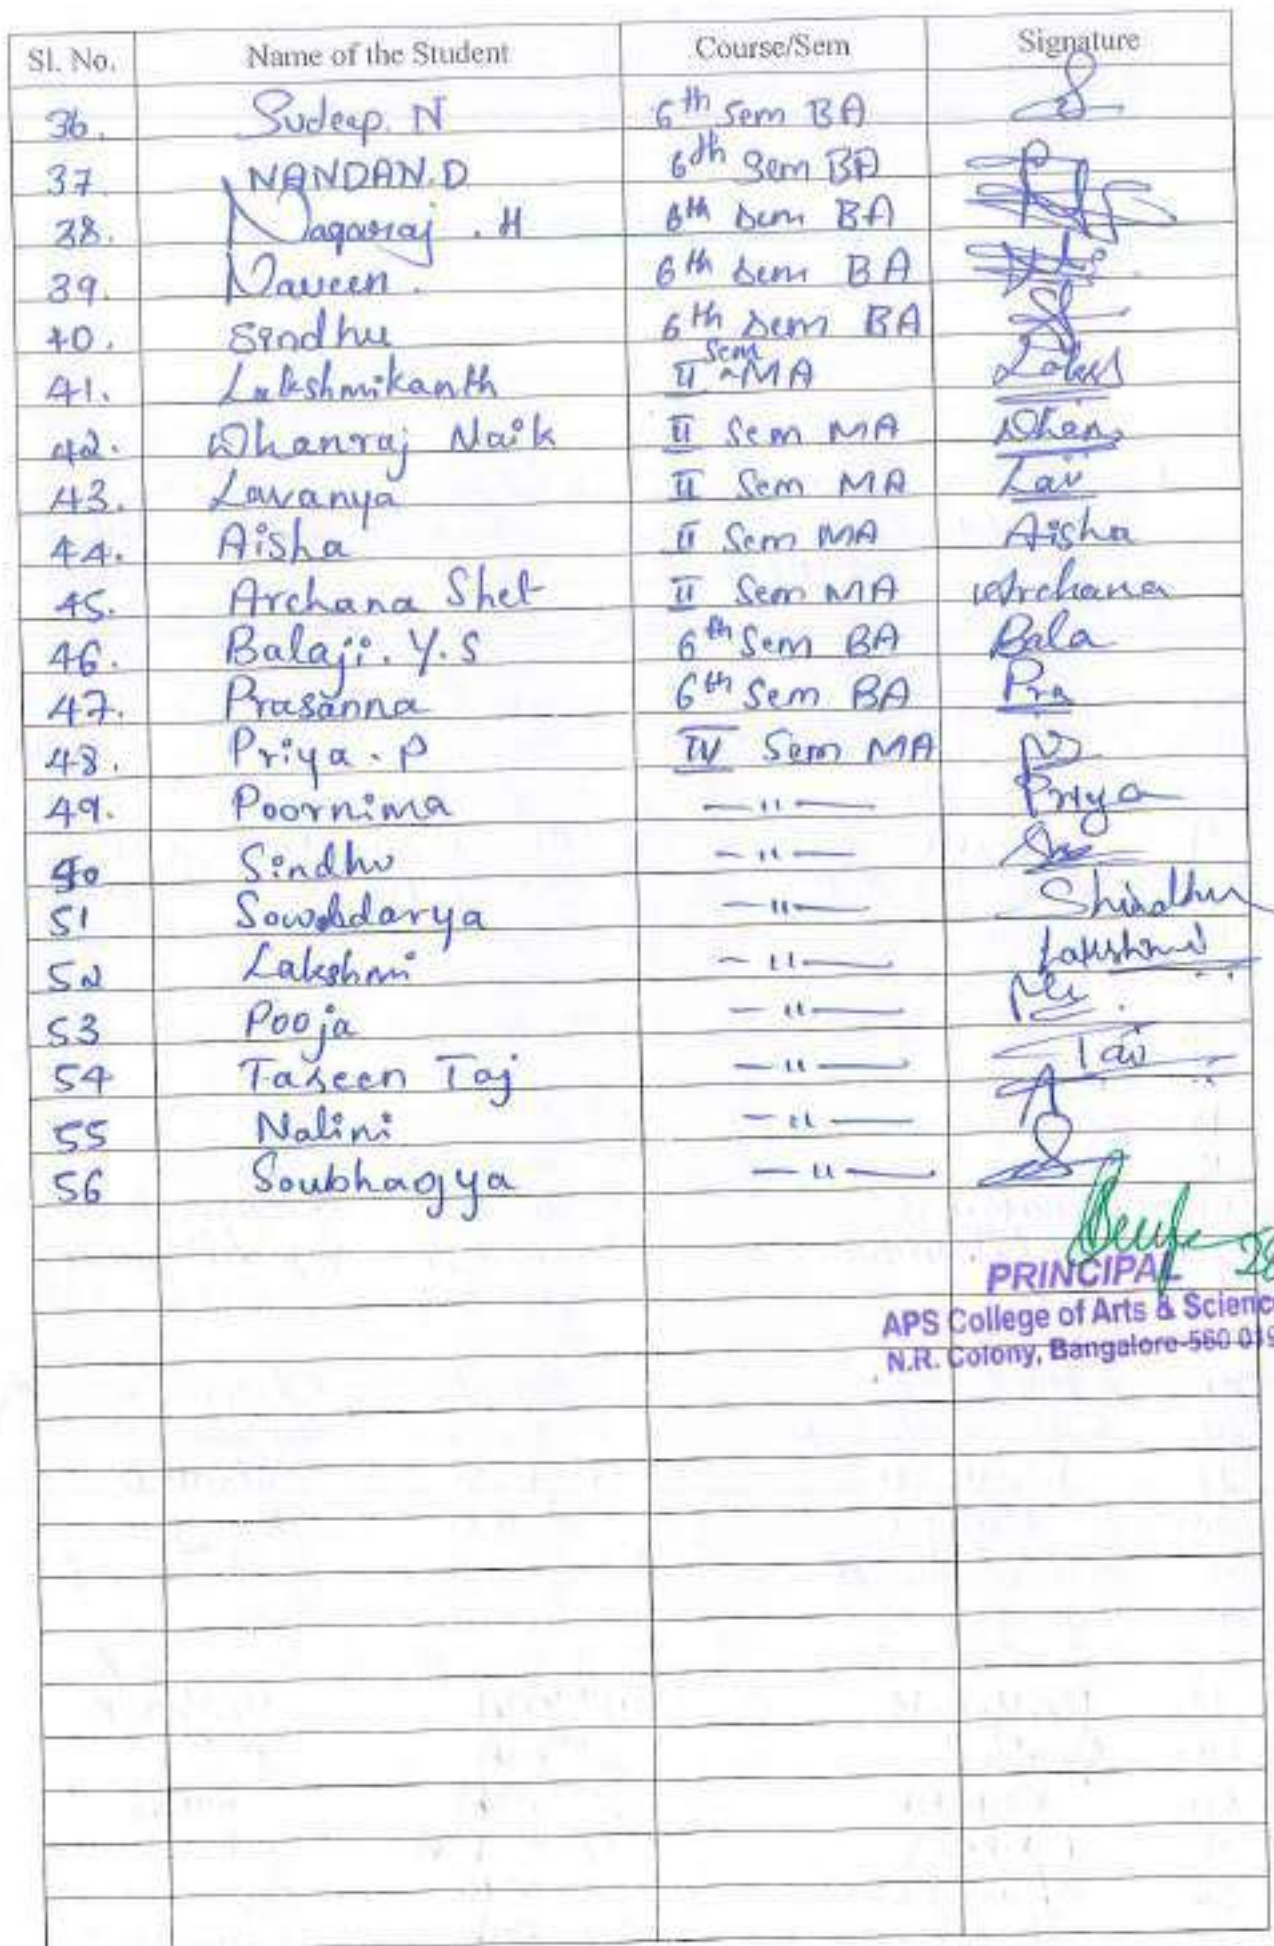 Sl. No. Name of the Student Course/Sem Signature
36. Sudeep. N 6th Sem BA
37. NANDAN.D 6th Sem BA
38. Nagaraj . H 6th Sem BA
39. Naveen. 6th Sem BA
40. Sindhu 6th Sem BA
41. Lakshmikanth II Sem MA
42. Dhanraj Naik II Sem MA Dhan
43. Lavanya II Sem MA Lav
44. Aisha II Sem MA Aisha
45. Archana Shet II Sem MA Archana
46. Balaji. Y.S 6th Sem BA Bala
47. Prasanna 6th Sem BA Pra
48. Priya. P IV Sem MA
49. Poornima —"— Priya
50 Sindhu —"—
51 —"—
52 Lakshmi —"— Lakshmi
53 Pooja —"—
54 Taseen Taj —"—
55 Nalini —"—
56 Soubhagya —"—
PRINCIPAL
APS College of Arts & Science
N.R. Colony, Bangalore-560 019